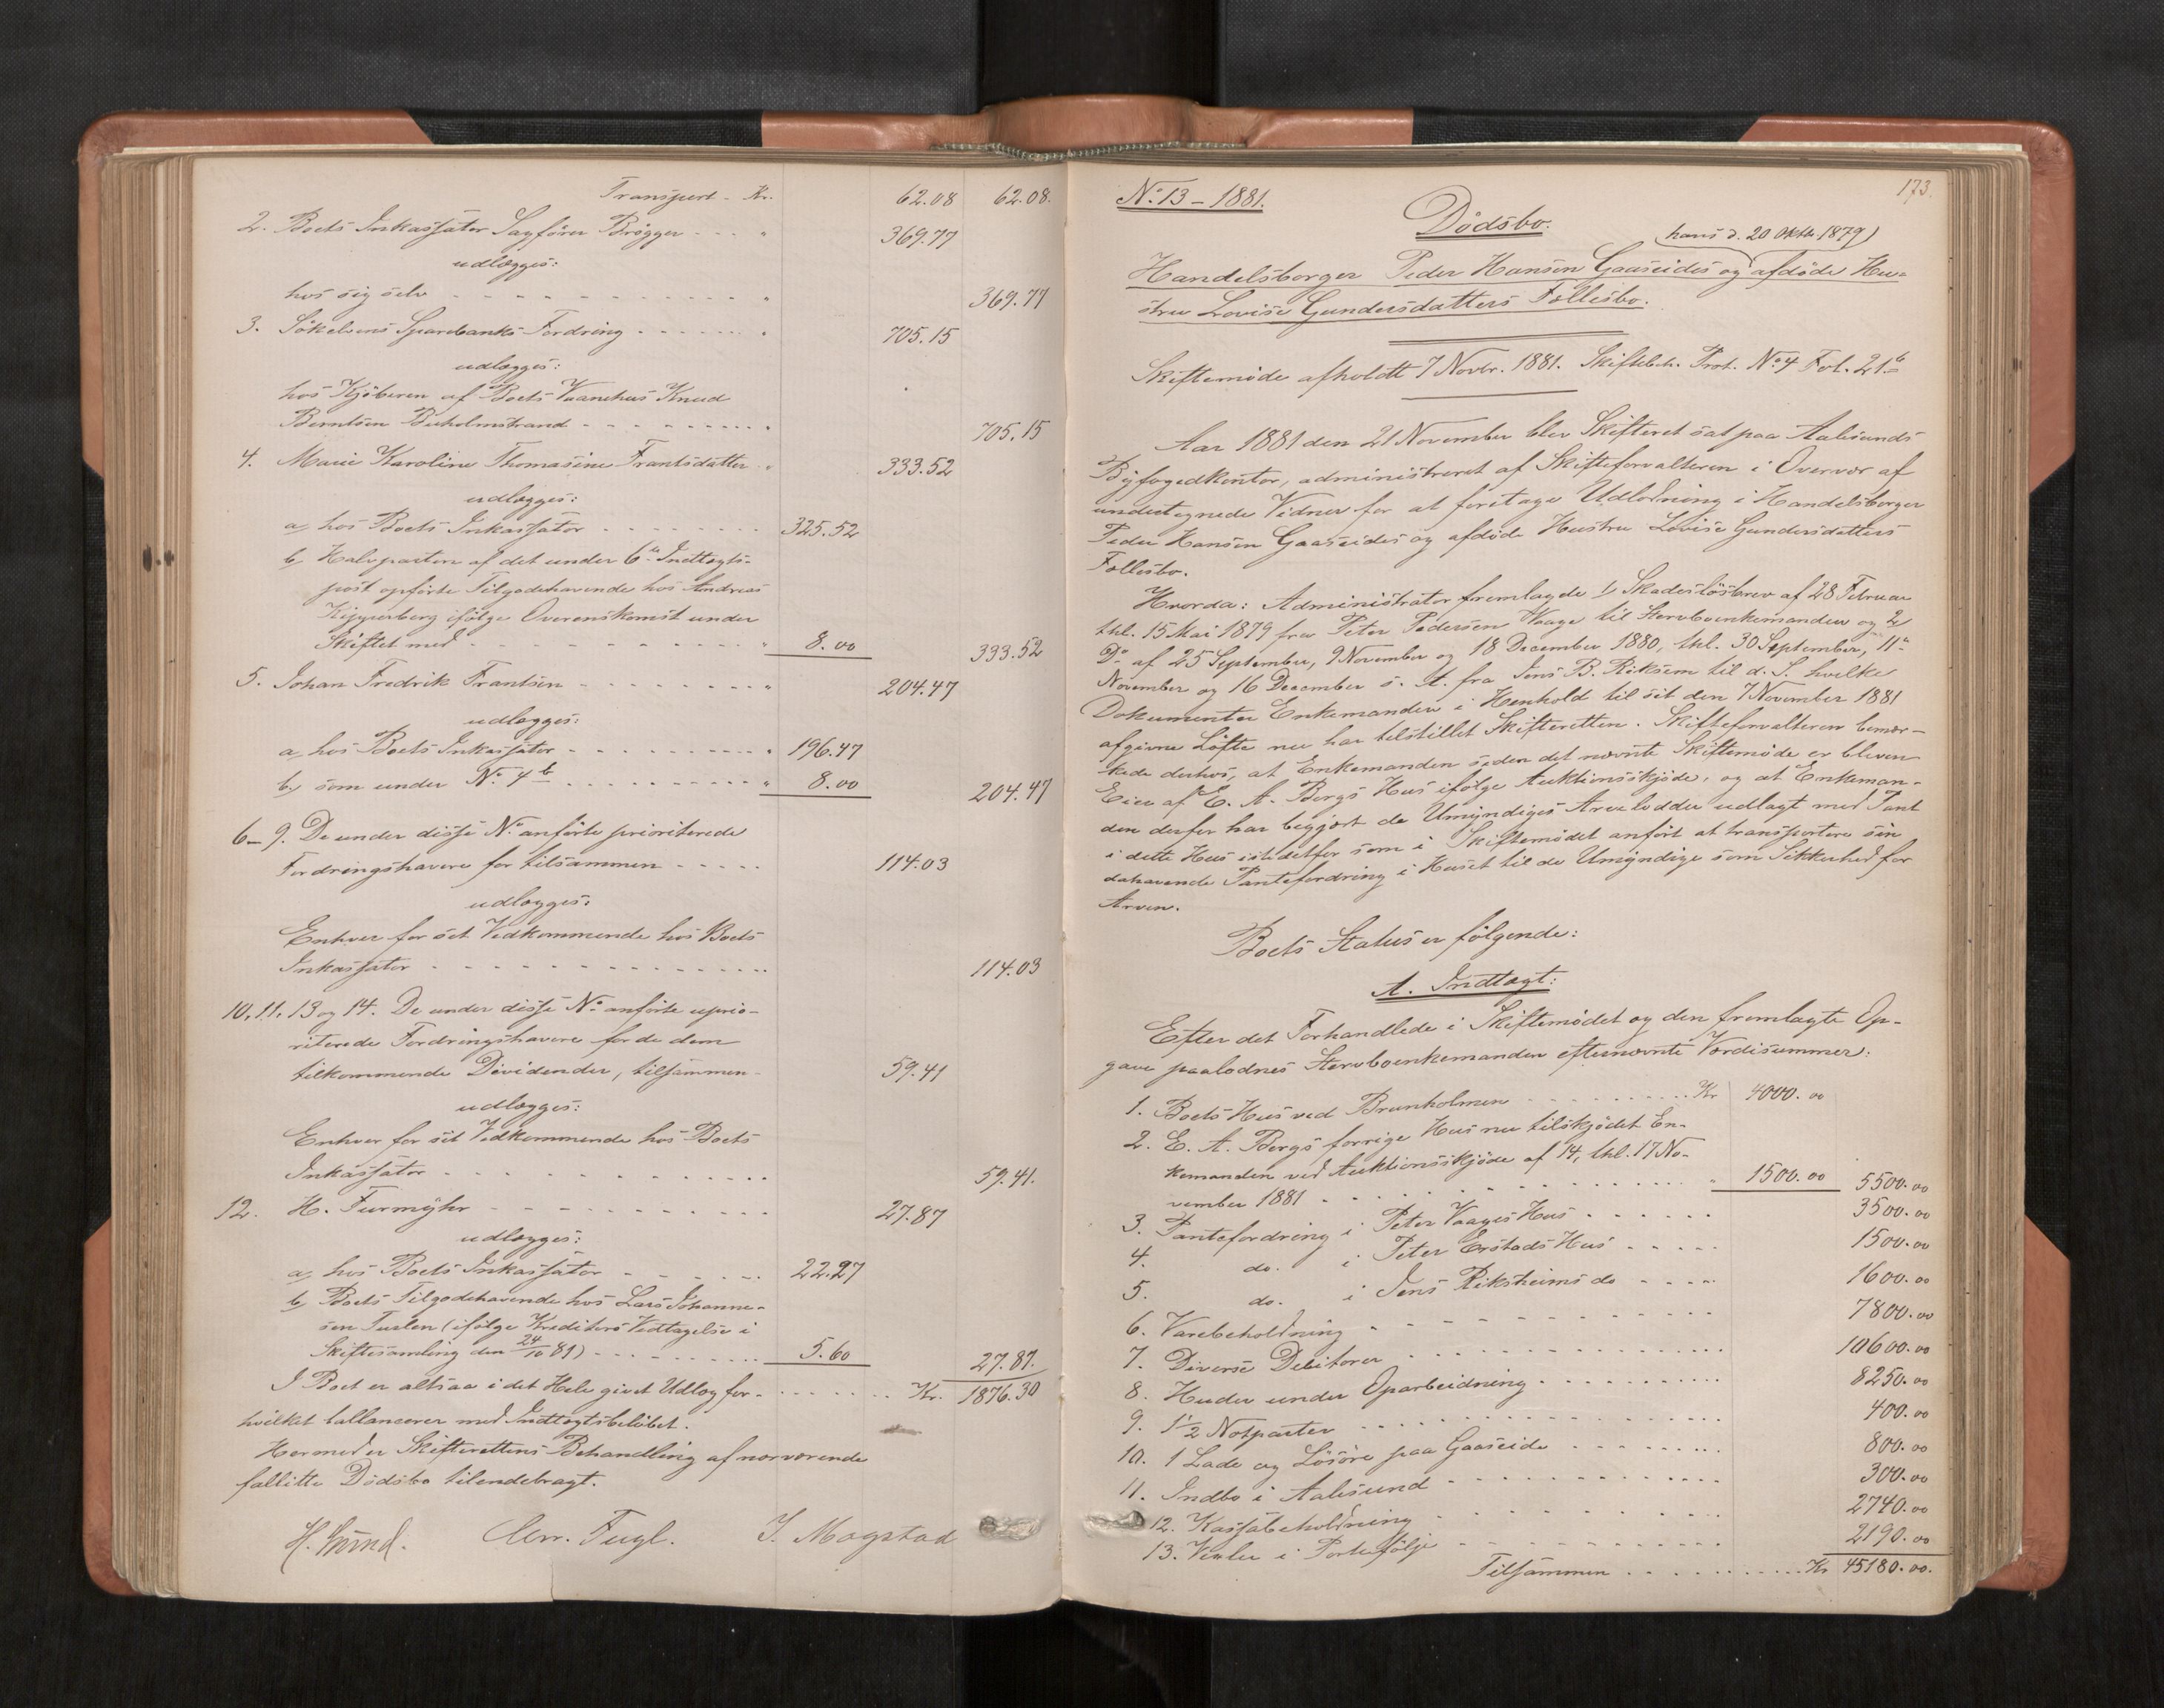 Transport - Kr. 62.08 62.08.
2. Boets Inkassator Sagfører Brøgger - - - " 369.77
udlægges:
hos sig selv - - - - - - - - - " 369.77
3. Søkelvens Sparebanks Fordring - - - - - " 705.15
udlægges:
hos Kjøberen af Boets Vaanehus Knud
Berntsen Buholmstrand - - - - - - - - - 705.15
4. Marie Karoline Thomasine Frantsdatter " 333.52
udlægges:
a, hos Boets Inkassator - - - - - - - 325.52
b, Halvparten af det under 6te Indtægts-
post opførte Tilgodehavende hos Andreas
Kipperberg ifølge Overenskomst under
Skiftet med - - - - - - - - - " 8.00 333.52
5. Johan Fredrik Frantsen - - - - - - - " 204.47
udlægges:
a, hos Boets Inkassator - - - - - - - - " 196.47
b, som under No. 4 b - - - - - - - - " 8.00 204.47
6-9. De under disse No. anførte prioriterede
Fordringshavere for tilsammen - - - - - 114.03
udlægges:
Enhver for sit Vedkommende hos Boets
Inkassator - - - - - - - - - - - - 114.03
10, 11, 13 og 14. De under disse No. anførte uprio-
riterede Fordringshavere for de dem
tilkommende Dividender, tilsammen - 59.41
udlægges:
Enhver for sit Vedkommende hos Boets
Inkassator - - - - - - - - - - - - 59.41.
12. H. Furmyhr - - - - - - - - - - - 27.87
udlægges:
a, hos Boets Inkassator - - - - - - 22.27
b, Boets Tilgodehavende hos Lars Johanne-
sen (ifølge Kreditors Vedtagelse i
Skiftesamling den 24/10 81) - - - - - - - - 5.60 27.87.
I Boet er altsaa i det Hele givet Udlæg for - - - - - - - - Kr. 1876.30
hvilket ballancerer med Indtægtsbeløbet.
Hermed er Skifterettens Behandling af nærværende
fallitte Dødsbo tilendebragt.
Chr. Fugl. J. Magstad
No. 13 - 1881. 173.
Dødsbo.
(hans d. 20 Oktbr. 1879)
Handelsborger Peder Hansen Gaaseides og afdøde Hu-
stru Lovise Gundersdatters Fællesbo.
Skiftemøde afholdt 7 Novbr. 1881. Skiftebeh. Prot. No. 4 Fol. 21b
Aar 1881 den 21 November blev Skifteret sat paa Aalesunds
Byfogedkontor, administreret af Skifteforvalteren i Overvær af
undertegnede Vidner for at foretage Udlodning i Handelsborger
Peder Hansen Gaaseides og afdøde Hustru Lovise Gundersdatters
Fællesbo.
Hvorda: Administrator fremlagde 1, Skadesløsbrev af 28 Februar
thl. 15 Mai 1879 fra Peter Pedersen Vaage til Stervboenkemanden og 2,
Do. af 25 September, 9 November og 18 December 1880, thl. 30 September, 11te
November og 16 December s. A. fra Jens B. Riksem til d. S. hvilke
Dokumenter Enkemanden i Henhold til sit den 7 November 1881
afgivne Løfte nu har tilstillet Skifteretten. Skifteforvalteren bemær-
kede derhos, at Enkemanden siden det nævnte Skiftemøde er bleven
Eier af E. A. Bergs Hus ifølge Auktionsskjøde, og at Enkeman-
den derfor har begjært de Umyndiges Arvelodder udlagt med Pant
i dette Hus istedetfor som i Skiftemødet anført at transportere sin
dahavende Pantefordring i Huset til de Umyndige som Sikkerhed for
Arven.
Boets Status er følgende:
A. Indtægt:
Efter det Forhandlede i Skiftemødet og den fremlagte Op-
gave paalodnes Stervboenkemanden efternævnte Værdisummer:
1. Boets Hus ved Brunholmen - - - - - - - - - Kr 4000.00
2. E. A. Bergs forrige Hus nu tilskjødet En-
kemanden ved Auktionsskjøde af 14, thl. 17 No-
vember 1881 - - - - - - - - - - - - - " 1500.00 5500.00
3. Pantefordring i Peter Vaages Hus - - - - - - 3500.00
4. do. i Peter Erstads Hus - - - - - 1500.00
5. do. i Jens Riksheims do - - - - 1600.00
6. Varebeholdning - - - - - - - - - - - 7800.00
7. Diverse Debitorer - - - - - - - - - - - - 10600.00
8. Huder under Oparbeidning - - - - - - - - 8250.00
9. 1 1/2 Notparter - - - - - - - - - - - - - 400.00
10. 1 Lade og Løsøre paa Gaaseide - - - - - - - - 800.00
11. Indbo i Aalesund - - - - - - - - - - - 300.00
12. Kassabeholdning - - - - - - - - - - - 2740.00
13. Vexler i Portefølje - - - - - - - - - - - 2190.00
Tilsammen - - - - - - - - - - Kr 45180.00.